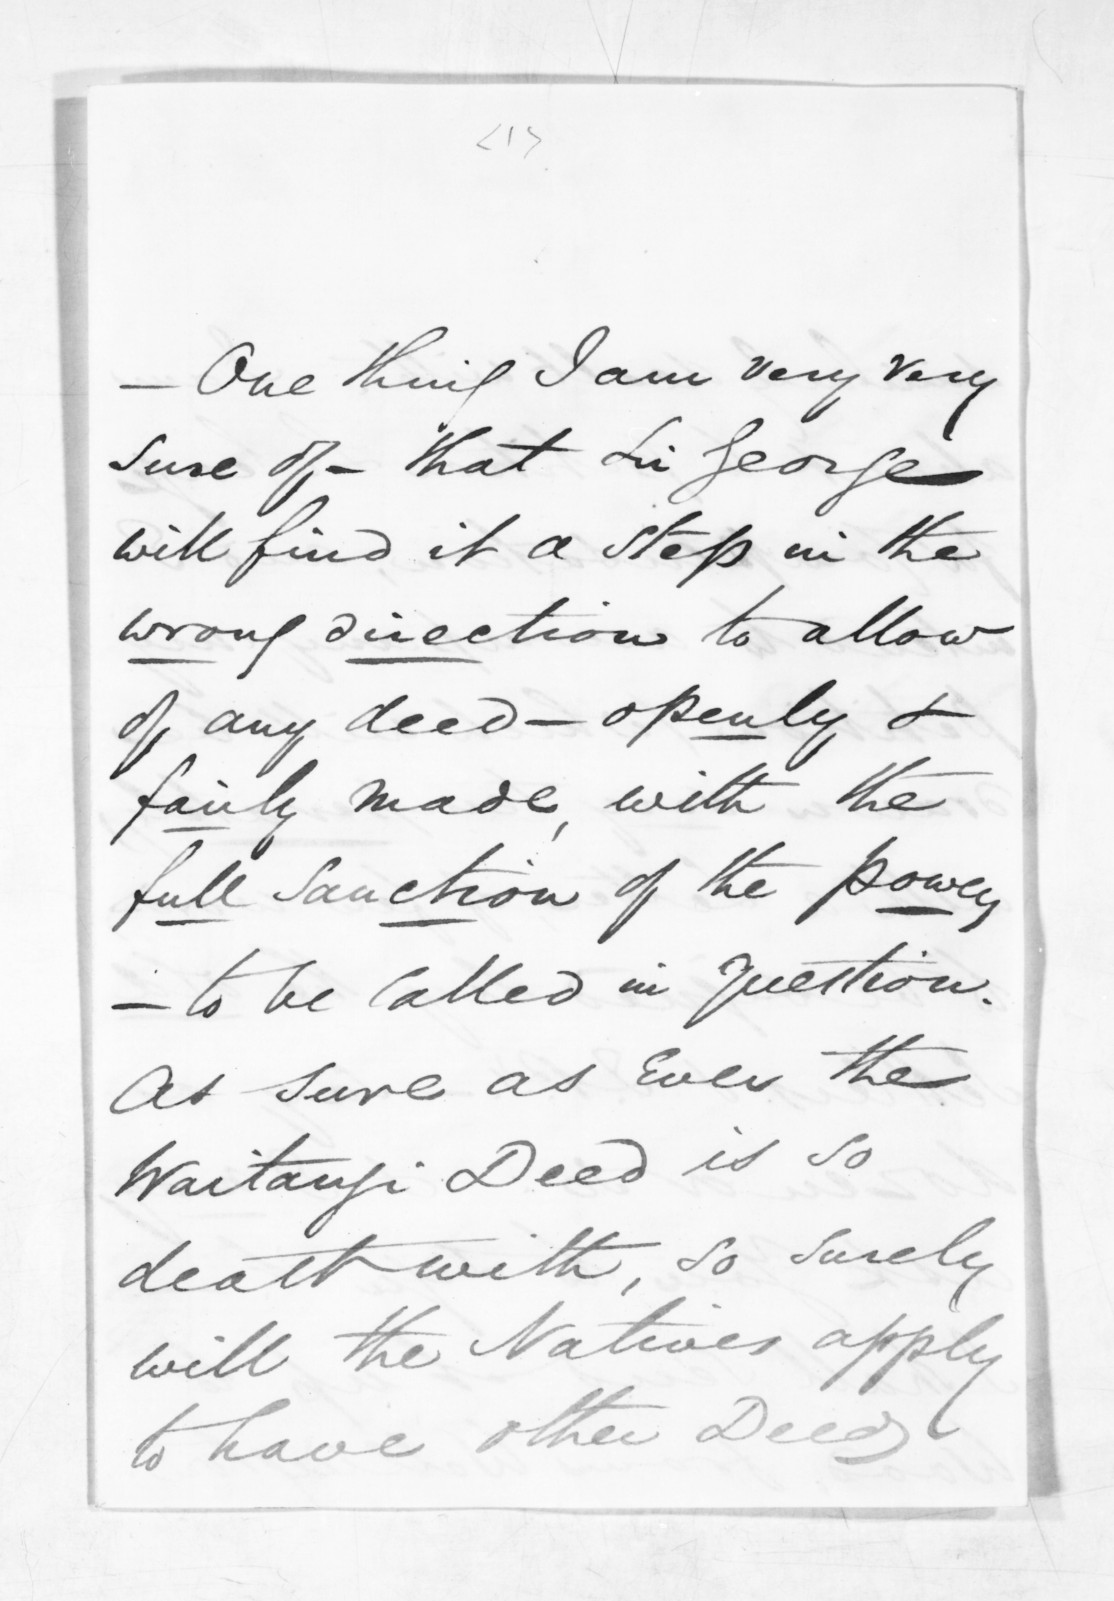 <1>
— One thing I am very very
sure of — that Sir George
will find it a step in the
wrong direction to allow
of any deed — openly &
fairly made, with the
full sanction of the power,
— to be called in question.
As sure as ever the
Waitangi Deed is so
dealt with, so surely
will the Natives apply
to have other Deeds